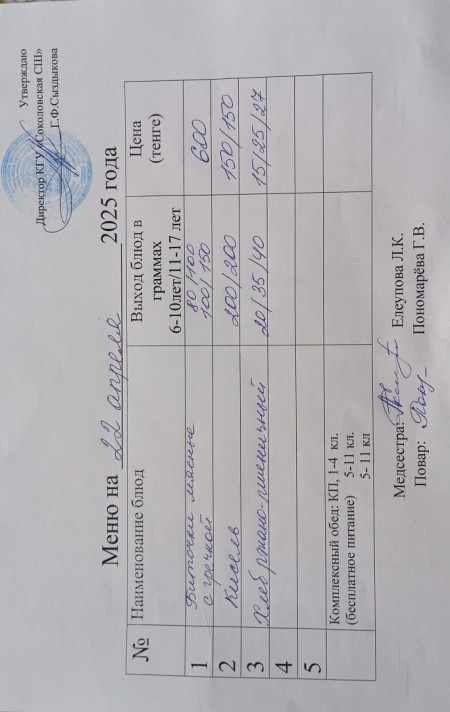 Утверждаю
Директор КГУ «Соколовская СШ»
Г.Ф.Сыздыкова
Меню на 22 апреля 2025 года
№ Наименование блюд Выход блюд в граммах 6-10лет/11-17 лет Цена (тенге)
1 Биточки мясные 80/100 600
с гречкой 100/150
2 Кисель 200/200 150/150
3 Хлеб ржано-пшеничный 20/35/40 15/25/27
4
5
Комплексный обед: КП, 1-4 кл.
(бесплатное питание) 5-11 кл.
5- 11 кл
Медсестра: Елеупова Л.К.
Повар: Пономарёва Г.В.